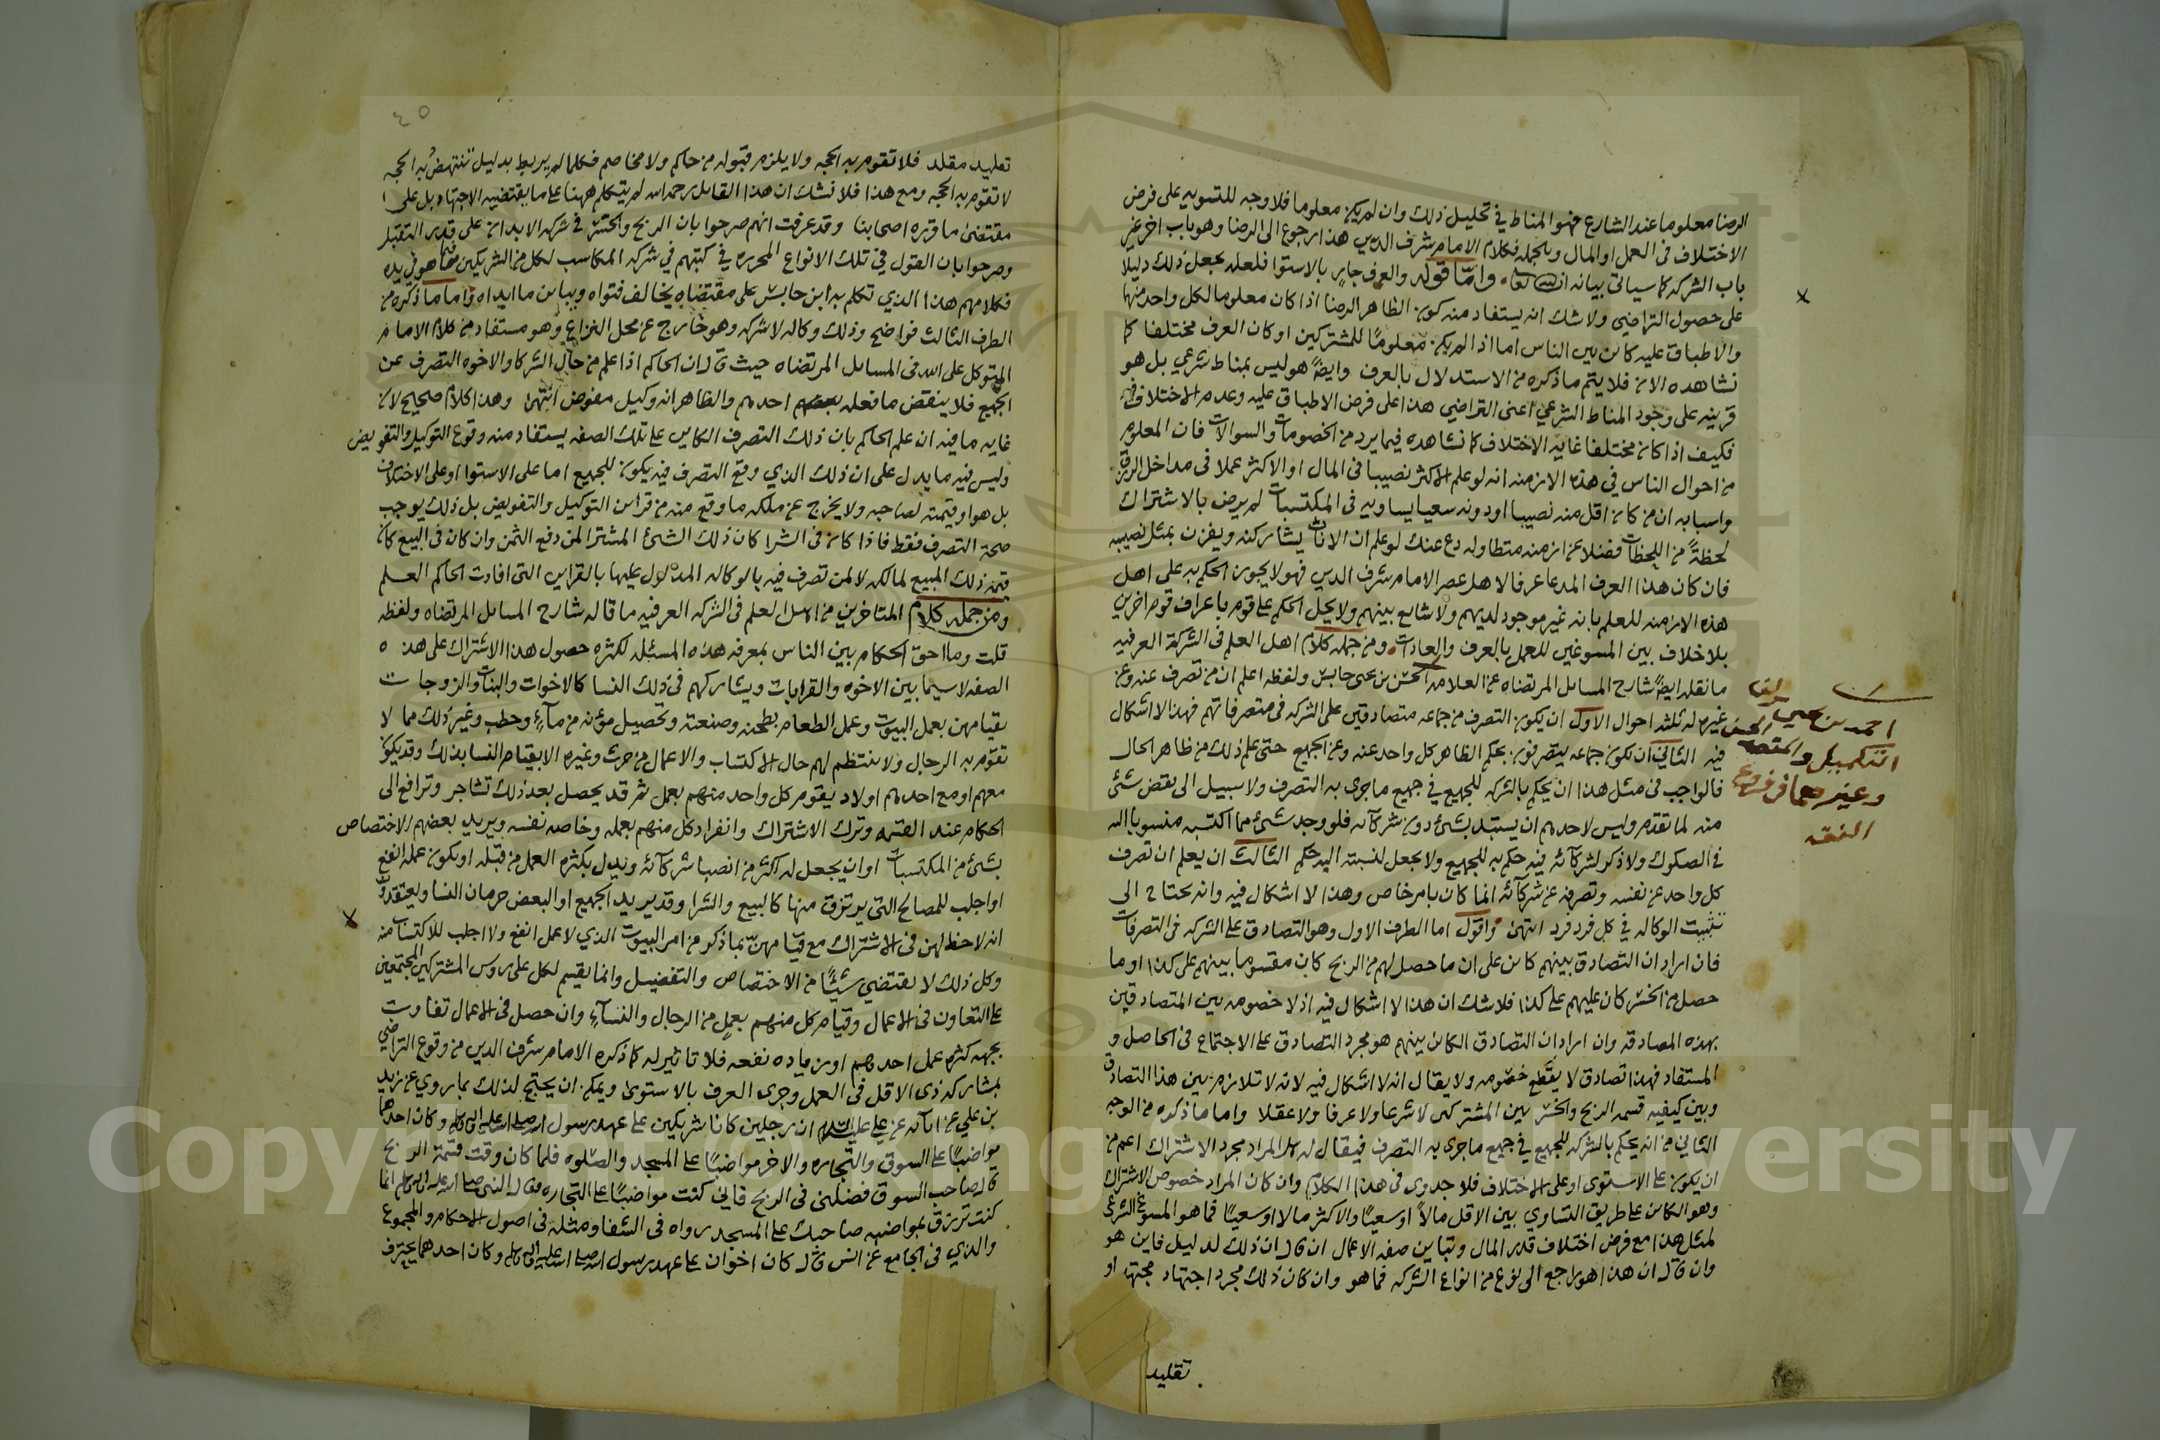 الرضا معلوما عند الشارع فهو المناط في تحليل ذلك وان لم يكن معلوما فلا وجه للتسويه على فرض
الاختلاف في العمل او المال وبالجمله فكلام الامام شرف الدين هذا رجوع الى الرضا وهو باب اخر غير
باب الشركه كما سياتي بيانه ان شا الله تعا واما قوله والعرف جاير بالاستوا فلعله يجعل ذلك دليلا
على حصول التراضي ولا شك انه يستفاد منه كون الظاهر الرضا اذا كان معلوما لكل واحد منهما
والاطباق عليه كاىن بين الناس اما اذا لم يكن معلومًا للمشتركين او كان العرف مختلفا كما
نشاهده الان فلا يتم ما ذكره من الاستدلال بالعرف وايضًا هو ليس بمناط شرعي بل هو
قرينه على وجود المناط الشرعي اعنى التراضي هذا على فرض الاطباق عليه وعدم الاختلاف فيه
فكيف اذا كان مختلفا غايه الاختلاف كما نشاهده فيما يرد من الخصومات والسوالات فان المعلوم
من احوال الناس في هذه الازمنه انه لو علم الاكثر نصيبا في المال او الاكثر عملا في مداخل الرزق
واسبابه ان من كان اقل منه نصيبا او دونه سعيا يساويه في المكتسبات لم يرض بالاشتراك
لحظةً من اللحظات فضلا عن ازمنه متطاوله دع عنك لو علم ان الاناث يشاركنه ويفزن بمثل نصيبه
فان كان هذا العرف المدعا عرفا لاهل عصر الامام شرف الدين فهو لا يجوز الحكم به على اهل
هذه الازمنه للعلم بانه غير موجود لديهم ولا شايع بينهم ولا يحل الحكم على قوم باعراف قوم اخرين
بلا خلاف بين المسوغين للعمل بالعرف والعادات ومن جمله كلام اهل العلم في الشركة العرفيه
ما نقله ايضًا شارح المسايل المرتضاه عن العلامه الحسن بن يحيى حابس ولفظه اعلم ان من تصرف عنه وعن
غيره له ثلثه احوال الاول ان يكون التصرف من جماعه متصادقين على الشركه في متصرفاتهم فهذا لا اشكال
فيه الثاني ان تكون جماعه يتصرفون بحكم الظاهر كل واحد عنه وعن الجميع حتى علم ذلك من ظاهر الحال
فالواجب في مثل هذا ان يحكم بالشركه للجميع في جميع ما جرى به التصرف ولا سبيل الى نقض شئ
منه لما تقدم وليس لاحدهم ان يستبد بشئ دون شركآئه فلو وجد شئ مما اكتسبه منسوبا اليه
في الصكوك ولا ذكر لشركآئه فيه حكم به للجميع ولا يجعل لنسبته اليه حكم الثالث ان يعلم ان تصرف
كل واحد عن نفسه وتصرفه عن شركآئه انما كان بامر خاص وهذا لا اشكال فيه وانه يحتاج الى
تثبيت الوكاله في كل فرد فرد انتهى واقول اما الطرف الاول وهو التصادق على الشركه في التصرفات
فان اراد ان التصادق بينهم كاىن على ان ما حصل لهم من الربح كان مقسوما بينهم على كذا او ما
حصل من الخسر كان عليهم على كذا فلا شك ان هذا لا اشكال فيه اذ لا خصومه بين المتصادقين
بهذه المصادقه وان اراد ان التصادق الكاىن بينهم هو مجرد التصادق على الاجتماع في الحاصل و
المستفاد فهذا تصادق لا يقطع خصومه ولا يقال انه لا اشكال فيه لانه لا تلازم بين هذا التصادق
وبين كيفيه قسمه الربح والخسر بين المشتركين لا شرعا ولا عرفا ولا عقلا واما ما ذكره من الوجه
الثاني من انه يحكم بالشركه للجميع في جميع ما جرى به التصرف فيقال له هل المراد مجرد الاشتراك اعم من
ان يكون على الاستوى او على الاختلاف فلا جدوى في هذا الكلام وان كان المراد خصوص الاشتراك
وهو الكاىن على طريق التساوي بين الاقل مالاً او سعيًا والاكثر مالا او سعيًا فما هو المسوغ الشرعي
لمثل هذا مع فرض اختلاف قدر المال وتباين صفه الاعمال ان قال ان ذلك لدليل فاين هو
وان قال ان هذا هو راجع الى نوع من انواع الشركه فما هو وان كان ذلك مجرد اجتهاد مجتهد او
تقليد
احمد بن يحيى
التكميل
وغيرهما في فروع
الفقه
٤٥
تقليد مقلد فلا تقوم به الحجه ولا يلزم قبوله من حاكم ولا مخاصم فكلما لم يربط بدليل تنتهض به الحجه
لا تقوم به الحجه ومع هذا فلا نشك ان هذا القايل رحمه الله لم يتكلم ههنا على ما يقتضيه الاجتهاد بل على
مقتضى ما قرره اصحابنا وقد عرفت انهم صرحوا بان الربح والخسر في شركه الابدان على قدر التقبل
وصرحوا بان القول في تلك الانواع المحرره في كتبهم في شركه المكاسب لكل من الشريكين فيما هو في يده
فكلامهم هذا الذي تكلم به ابن حابس على مقتضاه يخالف فتواه ويباين ما ابداه واما ما ذكره من
الطرف الثالث فواضح وذلك وكاله لا شركه وهو خارج عن محل النزاع وهو مستفاد من كلام الامام
المتوكل على الله في المسايل المرتضاه حيث قال ان الحاكم اذا علم من حال الشركا والاخوه التصرف عن
الجميع فلا ينقض ما فعله احدهم والظاهر انه وكيل مفوض انتهى وهذا كلام صحيح لان
غايه ما فيه ان علم الحاكم بان ذلك التصرف الكاين على تلك الصفه يستفاد منه وقوع التوكيل والتفويض
وليس فيه ما يدل على ان ذلك الذي وقع التصرف فيه يكون للجميع اما على الاستوا او على الاختلاف
بل هو او قيمته لصاحبه ولا يخرج عن ملكه ما وقع منه من قراىن التوكيل والتفويض بل ذلك يوجب
صحة التصرف فقط فاذا كان في الشرا كان ذلك الشئ المشترا لمن دفع الثمن وان كان في البيع كان
قيمه ذلك المبيع لمالكه لا لمن تصرف فيه بالوكاله المدلول عليها بالقراين التي افادت الحاكم العلم
ومن جمله كلام المتاخرين من اهل العلم في الشركه العرفيه ما قاله شارح المسايل المرتضاه ولفظه
قلت وما احق الحكام بين الناس بمعرفه هذه المسئله لكثره حصول هذا الاشتراك على هذه
الصفه لا سيما بين الاخوه والقرابات ويشاركهم في ذلك النسا كالاخوات والبنات والزوجات
بقيامهن بعمل البيوت وعمل الطعام بطحنه وصنعته وتحصيل مؤنه من مآءٍ وحطب وغير ذلك مما لا
تقوم به الرجال ولا ينتظم لهم حال الاكتساب والاعمال من حرث وغيره الا بقيام النسا بذلك وقد يكون
معهم او مع احدهم اولاد يقوم كل واحد منهم بعمل ثم قد يحصل بعد ذلك تشاجر وترافع الى
الحكام عند القسمه وترك الاشتراك وانفراد كل منهم بعمله وخاصه نفسه ويريد بعضهم الاختصاص
بشئ من المكتسبات او ان يجعل له اكثر من انصبا شركآئه ويدل بكثره العمل من قبله او بكون عمله انفع
او اجلب للمصالح التي يرتزق منها كالبيع والشرا وقد يريد الجميع او البعض حرمان النسا ويعتقدون
انه لا حظ لهن في الاشتراك مع قيامهنّ بما ذكر من امر البيوت الذي لا عمل انفع ولا اجلب للاكتساب منه
وكل ذلك لا يقتضي شيئًا من الاختصاص والتفضيل وانما يقسم لكل على رؤس المشتركين المجتمعين
على التعاون في الاعمال وقيام كل منهم بعملٍ من الرجال والنسآءِ وان حصل في الاعمال تفاوت
بجهه كثره عمل احدهم او زياده نفعه فلا تاثير له كما ذكره الامام شرف الدين من وقوع التراضي
بمشاركه ذى الاقل في العمل وجرى العرف بالاستوى ويمكن ان يحتج لذلك بما روي عن زيد
بن علي عن ابآئه عن علي عليه السلام ان رجلين كانا شريكين على عهد رسول الله صلى الله عليه واله وكان احدهما
مواضبًا على السوق والتجاره والاخر مواضبًا على المسجد والصلوه فلما كان وقت قسمة الربح
قال صاحب السوق فضلني في الربح فاني كنت مواضبًا على التجاره فقال النبي صلى الله عليه واله وسلم انما
كنت ترزق بمواضبه صاحبك على المسجد رواه في الشفا ومثله في اصول الاحكام والمجموع
والذي في الجامع عن انس قال كان اخوان على عهد رسول الله صلى الله عليه واله وكان احدهما يحترف
Copyright © King Saud University